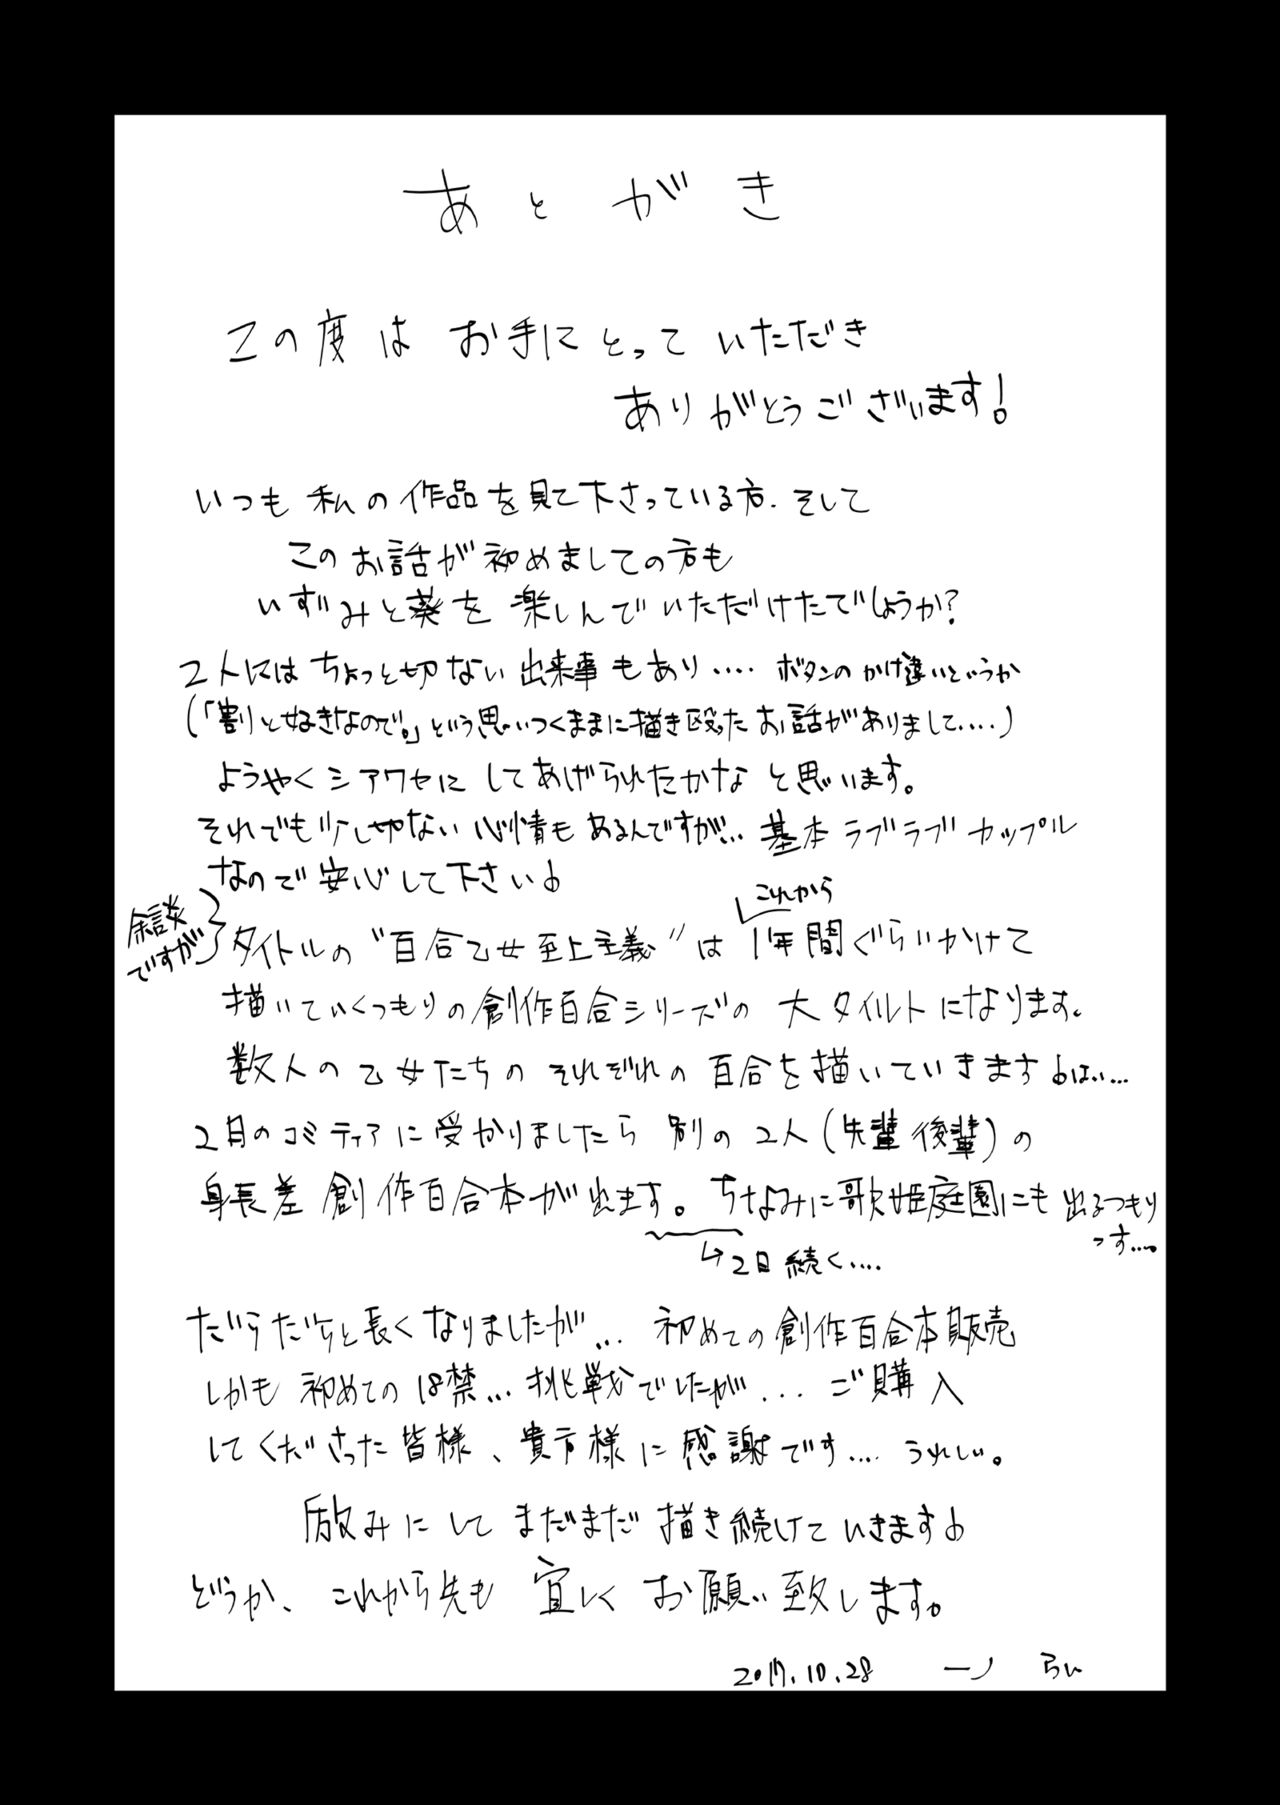 あとがき
この度は お手にとって いただき
ありがとうございます!
いつも 私の作品を見て下さっている方. そして
このお話が初めましての方も
いずみと葵を 楽しんでいただけたでしょうか?
2人には ちょっと切ない 出来事もあり‥‥ ボタンのかけ違いというか
(「割と好きなので。」という思いつくままに描き殴ったお話がありまして‥‥)
ようやくシアワセに してあげられたかな と思います。
それでも少し切ない 心情も あるんですが… 基本ラブラブカップル
なので 安心して下さい♪
これから
余談
ですが
タイトルの“百合乙女至上主義”は 1年間ぐらいかけて
描いていくつもりの創作百合シリーズの 大タイルトになります。
数人の 乙女たちの それぞれの 百合を描いていきます♪はい…
2月のコミティアに受かりましたら 別の2人(先輩後輩)の
身長差 創作百合本が出ます。 ちなみに歌姫庭園にも 出るつもり
っす‥‥。
↳2日続く‥‥
だらだらと長くなりましたが… 初めての創作百合本販売
しかも 初めての18禁… 挑戦でしたが... ご購入
してくださった皆様、貴方様に感謝です‥‥ うれしい。
励みにして まだまだ 描き続けていきます♪
どうか、これから先も 宜しく お願い致します。
2017.10.28 一ノ らい